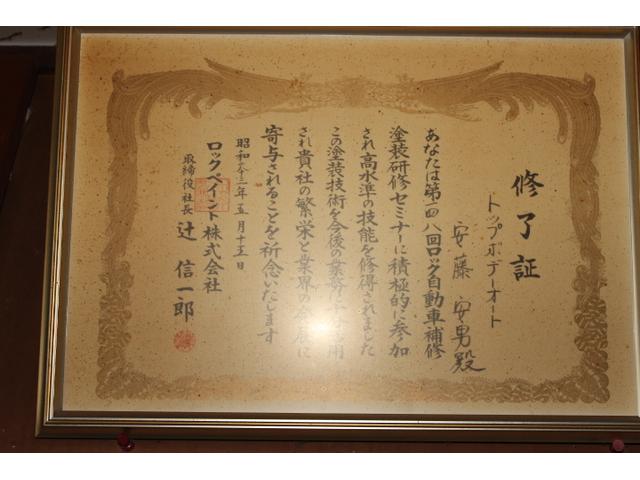 修了証
トップボデーオート
安藤安男殿
あなたは第一四八回ロック自動車補修
塗装研修セミナーに積極的に参加
され高水準の技能を修得されました
この塗装技術を今後の業務に 用
され貴社の繁栄と業界の発展に
寄与されることを祈念いたします
昭和六十三年五月十五日
ロックペイント株式会社
取締役社長 辻信一郎